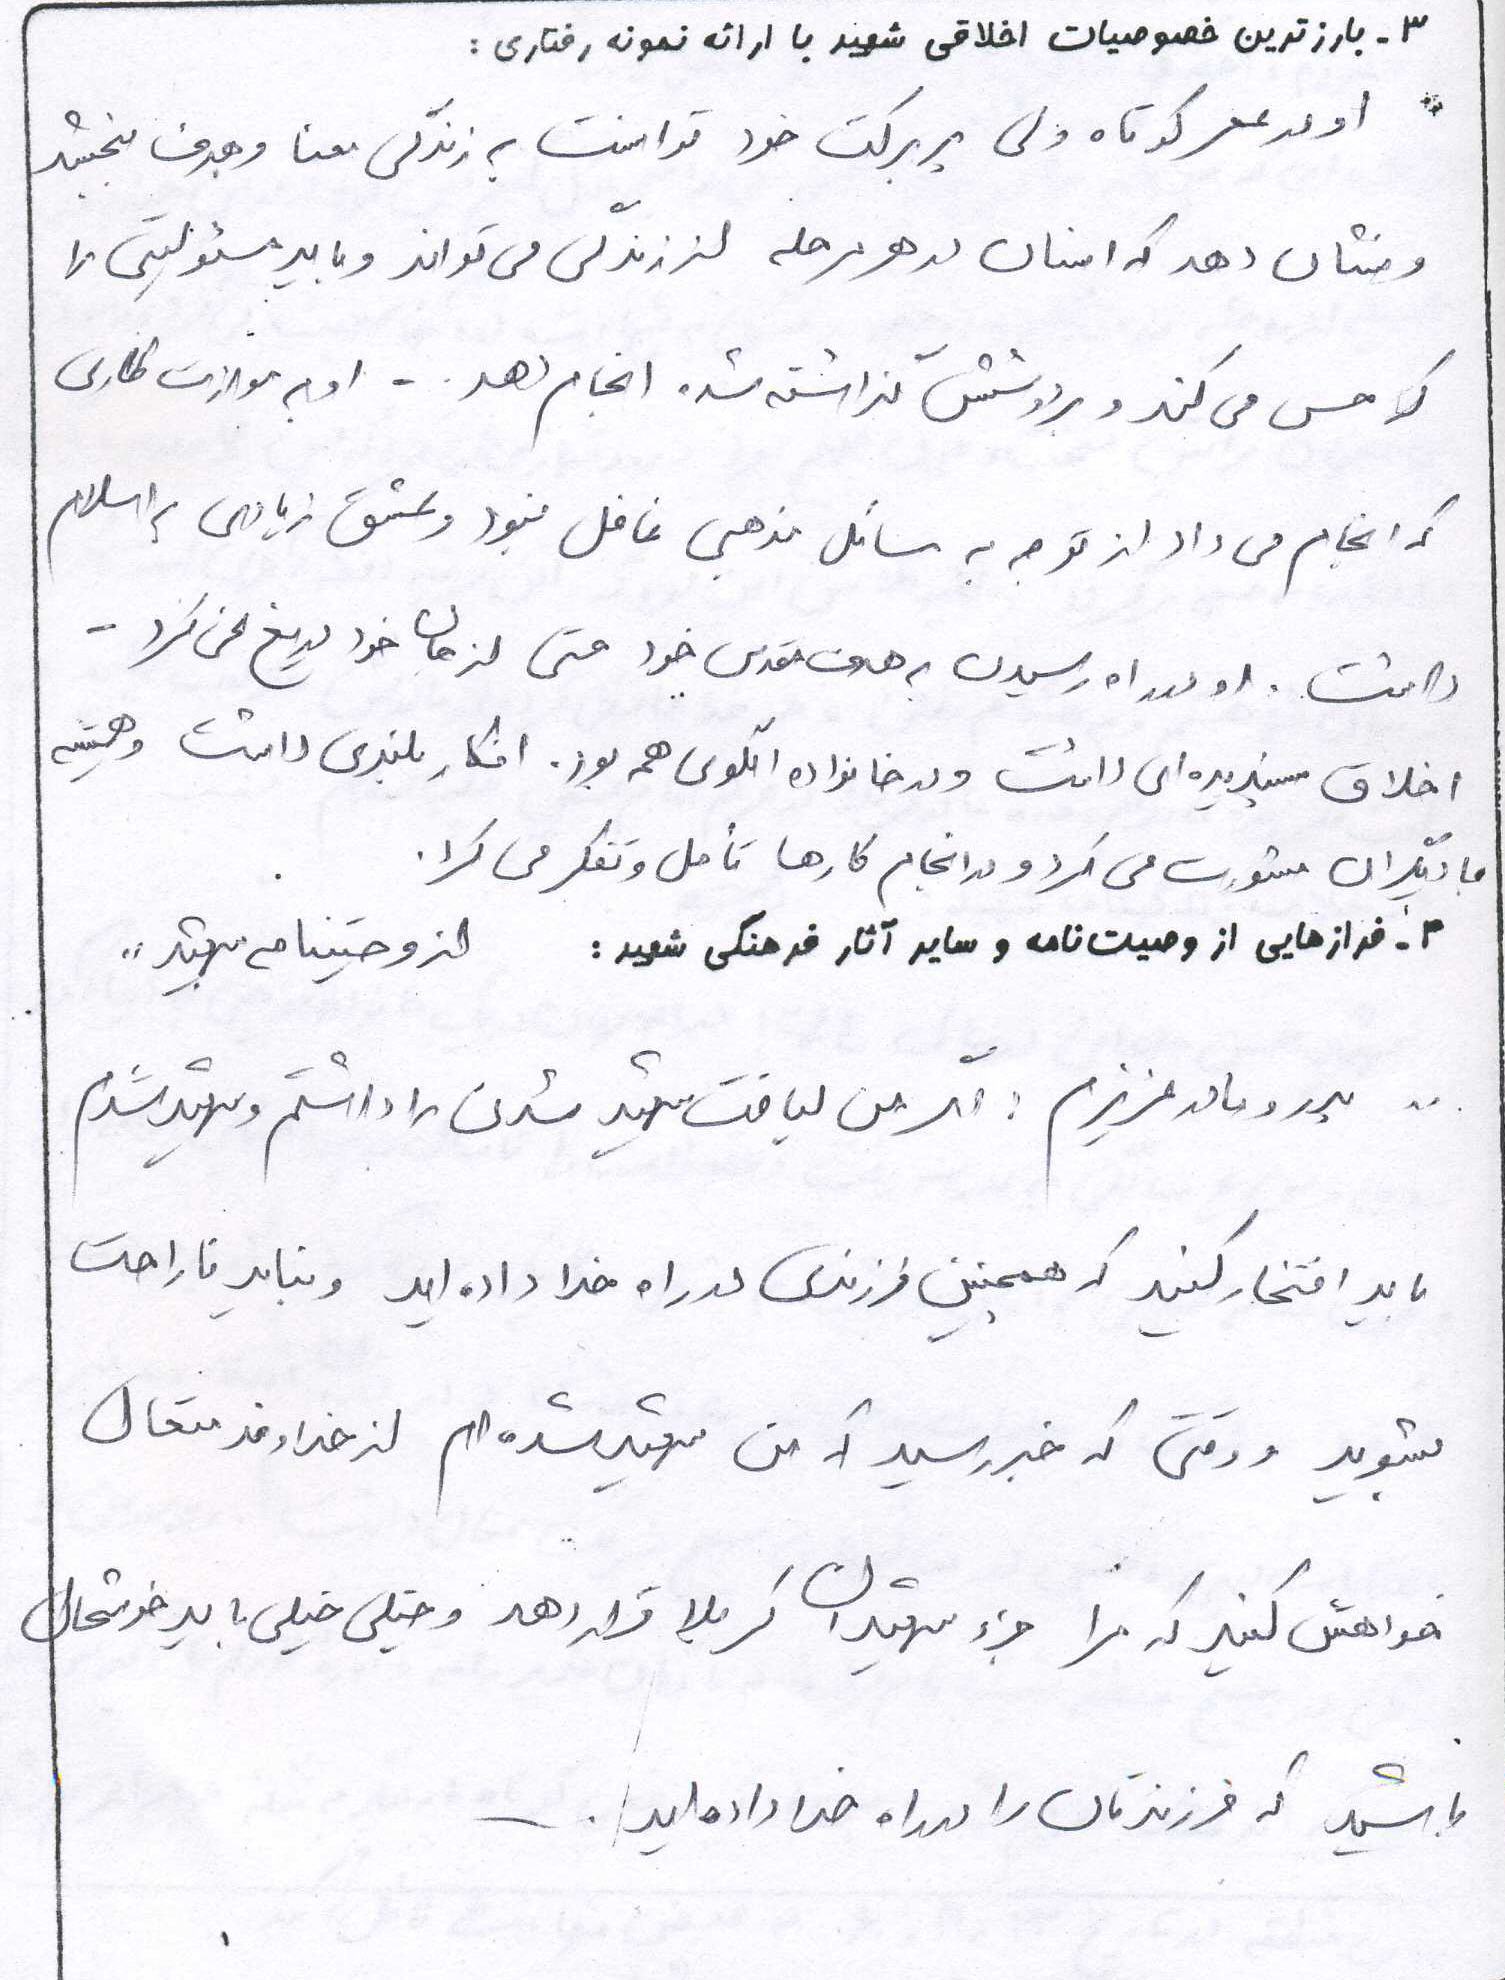 ۳- بارزترین خصوصیات اخلاقی شهید با ارائه نمونه رفتاری :
" او در عمر کوتاه ولی پر برکت خود توانست به زندگی معنا و هدف ببخشد
و نشان دهد که انسان در هر مرحله از زندگی می تواند و باید مسئولیتی را
که حس می کند و بر دوشش گذاشته شده انجام دهد . - او به موازات کاری
که انجام می داد از توجه به مسائل مذهبی غافل نبود و عشق زیادی به اسلام
داشت . او در راه رسیدن به هدف مقدس خود حتی از جان خود دریغ نمی کرد -
اخلاق پسندیده ای داشت و در خانواده الگوی همه بود . افکار بلندی داشت و همیشه
با دیگران مشورت می کرد و در انجام کارها تأمل و تفکر می کرد .
۴- فرازهایی از وصیت‌نامه و سایر آثار فرهنگی شهید : از وصیتنامه شهید "
" پدر و مادر عزیزم : اگر من لیاقت شهید شدن را داشتم و شهید شدم
باید افتخار کنید که همچنین فرزندی در راه خدا داده اید و نباید ناراحت
بشوید و وقتی که خبر رسید که من شهید شده ام از خداوند متعال
خواهش کنید که مرا جزء شهیدان کربلا قرار دهد و خیلی خیلی باید خوشحال
باشید که فرزندتان را در راه خدا داده اید .